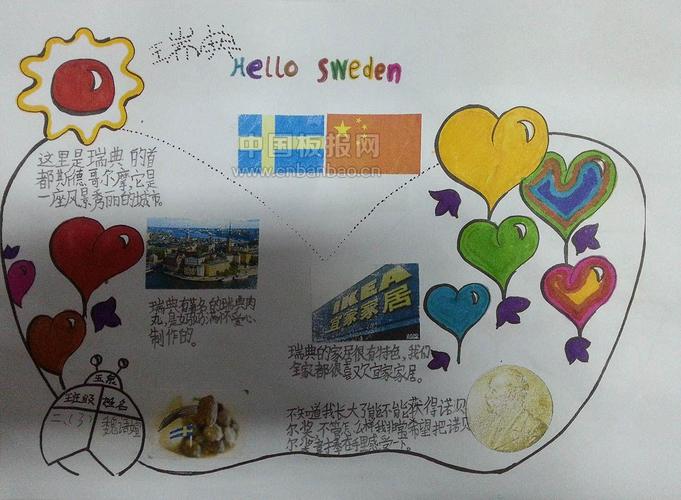 瑞典
Hello Sweden
中国板报网
www.cnbanbao.cn
这里是瑞典的首
都斯德哥尔摩,它是
一座风景秀丽的城市
瑞典有著名的瑞典肉
丸,是奶奶满怀爱心
制作的。
IKEA
宜家家居
瑞典的家居很有特色,我们
全家都很喜欢宜家家居。
不知道我长大了能不能获得诺贝
尔奖,不管怎么样我非常希望把诺贝
尔奖章拿在手里感一下。
班级 姓名
二、(3)